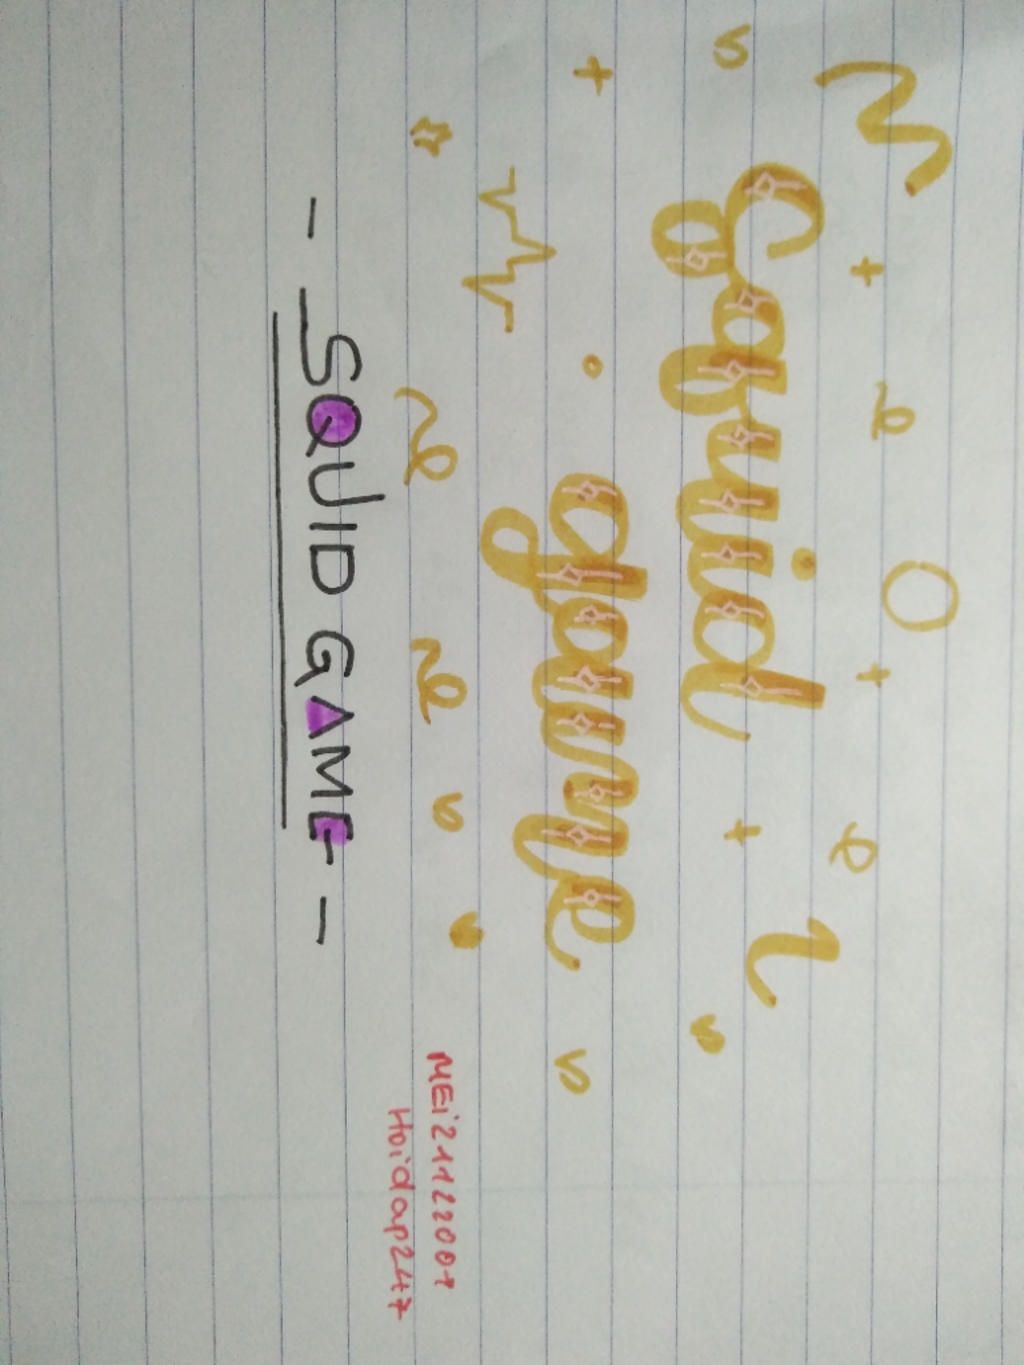 Squid
game
- SQUID GAME -
MEi21122007
Hoidap247